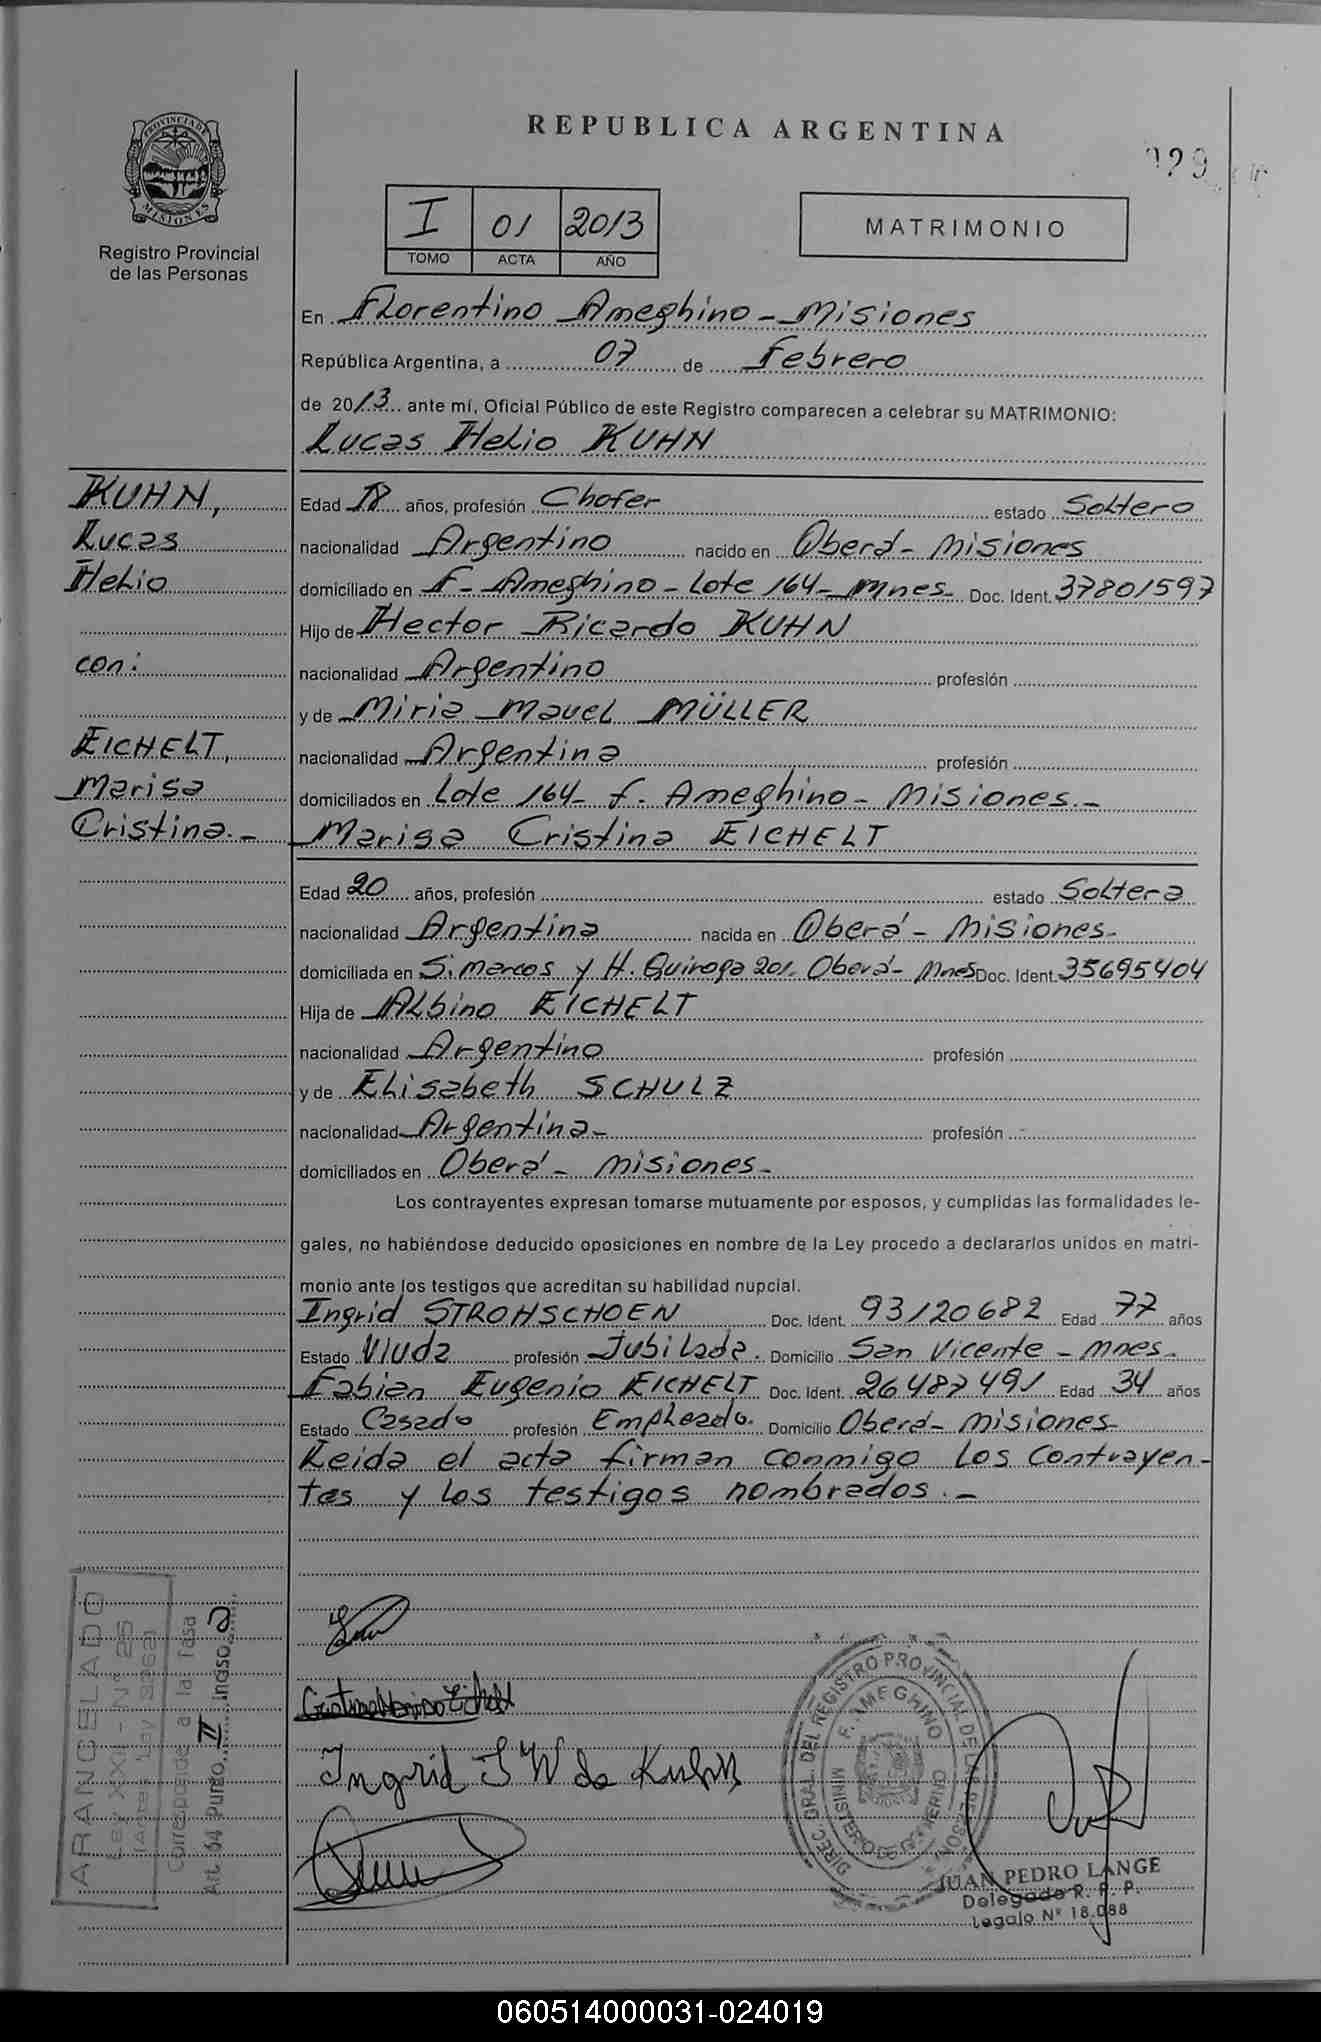 REPUBLICA ARGENTINA
029
PROVINCIA DE
MISIONES
Registro Provincial
de las Personas
I 01 2013
TOMO ACTA AÑO
MATRIMONIO
En Florentino Ameghino - Misiones
República Argentina, a 07 de febrero
de 2013 ante mí, Oficial Público de este Registro comparecen a celebrar su MATRIMONIO:
Lucas Helio KUHN
KUHN,
Lucas
Helio
con:
EICHELT,
Marisa
Cristina.-
Edad 18 años, profesión Chofer estado Soltero
nacionalidad Argentino nacido en Oberá - Misiones
domiciliado en F- Ameghino - Lote 164 - Mnes- Doc. Ident. 37801597
Hijo de Hector Ricardo KUHN
nacionalidad Argentino profesión
y de Miria Mavel MÜLLER
nacionalidad Argentina profesión
domiciliados en Lote 164- f. Ameghino - Misiones.-
Marisa Cristina EICHELT
Edad 20 años, profesión estado Soltera
nacionalidad Argentina nacida en Oberá - Misiones-
domiciliada en S. Marcos y H. Quiroga 201. Oberá - Mnes Doc. Ident. 35695404
Hija de Albino EICHELT
nacionalidad Argentino profesión
y de Elisabeth SCHULZ
nacionalidad Argentina - profesión
domiciliados en Oberá - Misiones-
Los contrayentes expresan tomarse mutuamente por esposos, y cumplidas las formalidades le-
gales, no habiéndose deducido oposiciones en nombre de la Ley procedo a declararlos unidos en matri-
monio ante los testigos que acreditan su habilidad nupcial.
Ingrid STROHSCHOEN Doc. Ident. 93120682 Edad 77 años
Estado Viuda profesión Jubilada. Domicilio San Vicente - Mnes-
Fabian Eugenio EICHELT Doc. Ident. 26487491 Edad 34 años
Estado Casado profesión Empleado. Domicilio Oberá - Misiones-
Leida el acta firman conmigo los contrayen-
tes y los testigos nombrados.-
ARANCELADO
Ley XXII - Nº 25
(Antes Ley 3262)
Corresponde a la Tasa
Art. 64 Punto II inciso a
Cristina Marisa Eichelt
Ingrid S W de Kuhn
DIREC. GRAL. DEL REGISTRO PROVINCIAL DE LAS PERSONAS
F. AMEGHINO
MINISTERIO DE GOBIERNO
JUAN PEDRO LANGE
Delegado R. P. P.
Legajo Nº 18.088
060514000031-024019